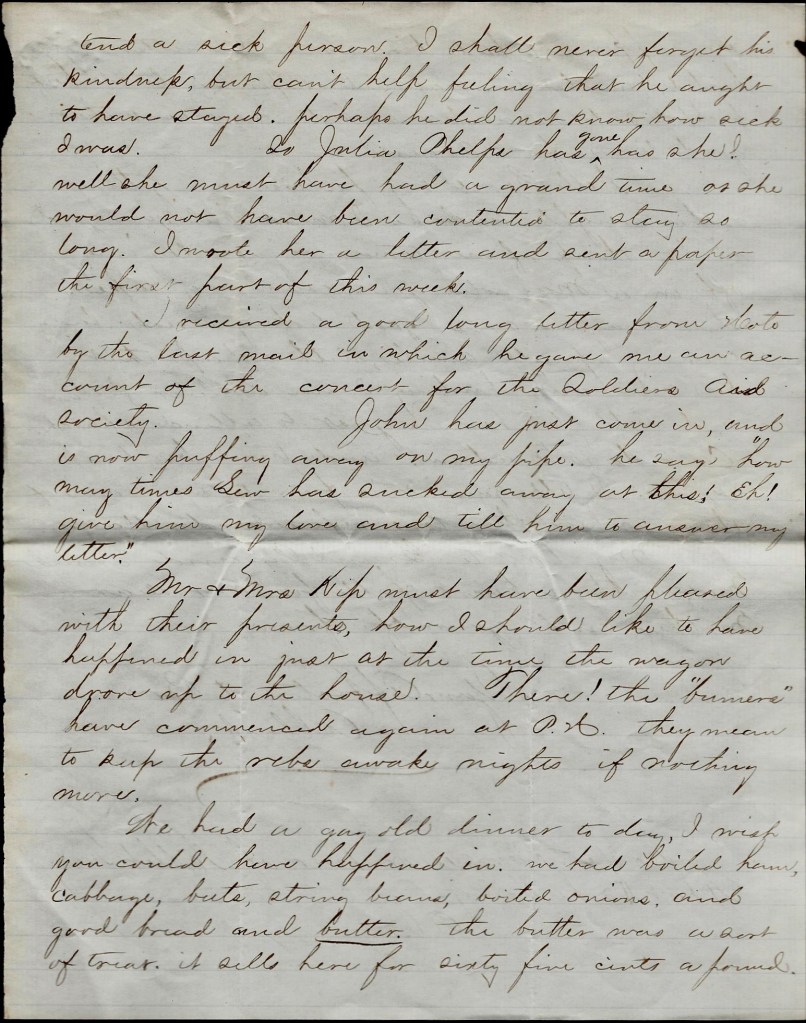 tend a sick person. I shall never forget his
kindness, but can't help feeling that he aught
to have stayed. perhaps he did not know how sick
I was. So Julia Phelps has gone has she!
well she must have had a grand time or she
would not have been contented to stay so
long. I wrote her a letter and sent a paper
the first part of this week.
I received a good long letter from
by the last mail in which he gave me an ac-
count of the concert for the Soldiers Aid
society. John has just come in, and
is now puffing away on my pipe. he say "how
may times Lew has sucked away at this! Eh!
give him my love and till him to answer my
letter."
Mr & Mrs Kip must have been pleased
with their presents, how I should like to have
happened in just at the time the wagon
drove up to the house! There! the "bumers"
have commenced again at P.H. they mean
to keep the rebs awake nights if nothing
more.
We had a gay old dinner to day, I wish
you could have happened in. we had boiled ham,
cabbage, beets, string beans, boiled onions, and
good bread and butter. the butter was a sort
of treat. it sells here for sixty five cents a pound.